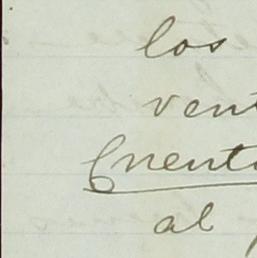 los
vent
Cuent
al